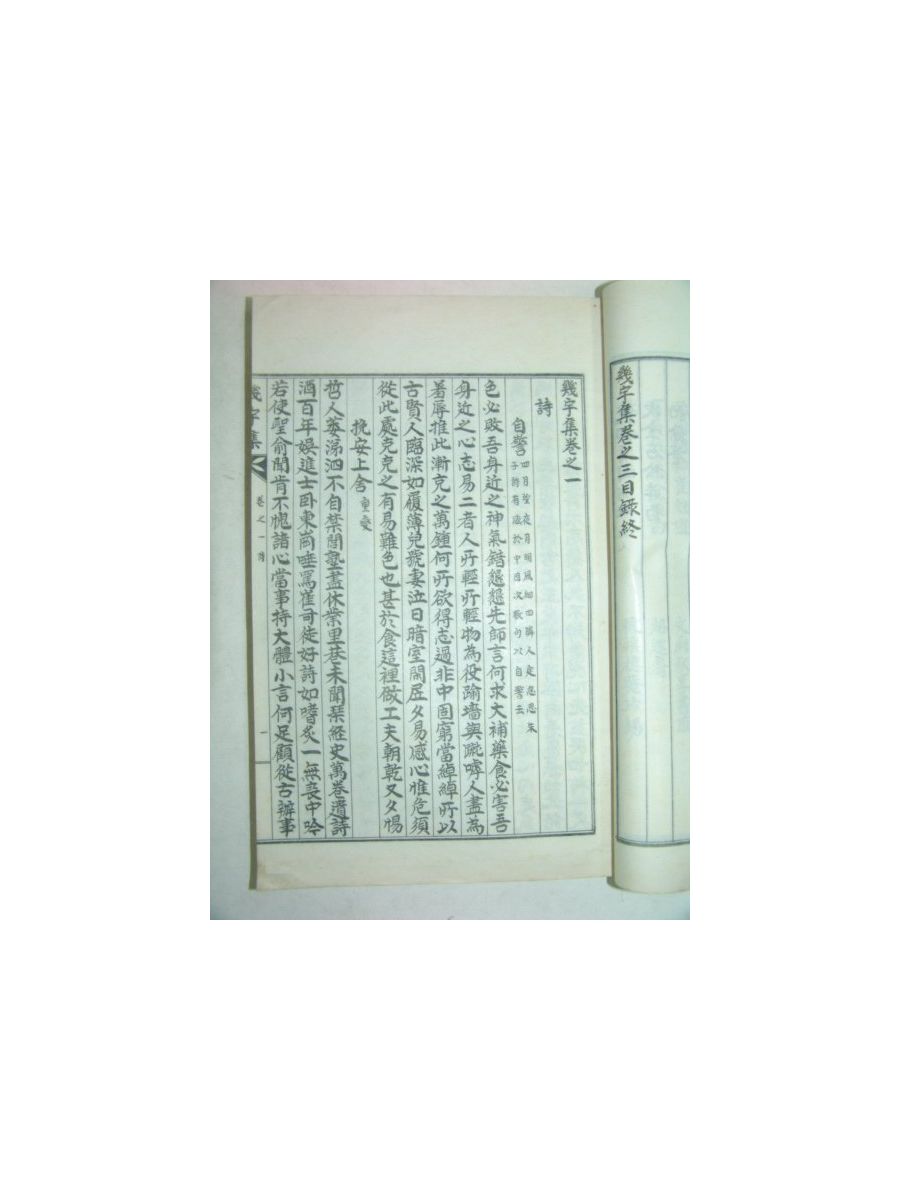 幾宇集卷之三目錄終
幾宇集卷之一
詩
自警 四月望夜月明風細四隣人定忽忽朱
子詩有感於中因次數句以自警云
色必敗吾身近之神氣錯懇懇先師言何求大補藥食必害吾
身近之心志易二者人所輕所輕物為役踰墻與蹴嘑人盡為
羞辱推此漸克之萬鍾何所欲得志過非中固窮當綽綽所以
古賢人臨深如履薄兒號妻泣日暗室閒居夕易感心惟危須
從此處克克之有易難色也甚於食這裡做工夫朝乾又夕惕
挽安上舍 重燮
哲人萎涕泗不自禁閭塾盡休業里巷未聞琹経史萬卷遺詩
酒百年娛進士卧東崗唾罵崔司徒好詩如嗜炙一無喪中吟
若使聖俞聞肯不愧諸心當事持大體小言何足顧從古辦事
幾宇集 卷之一 詩 一